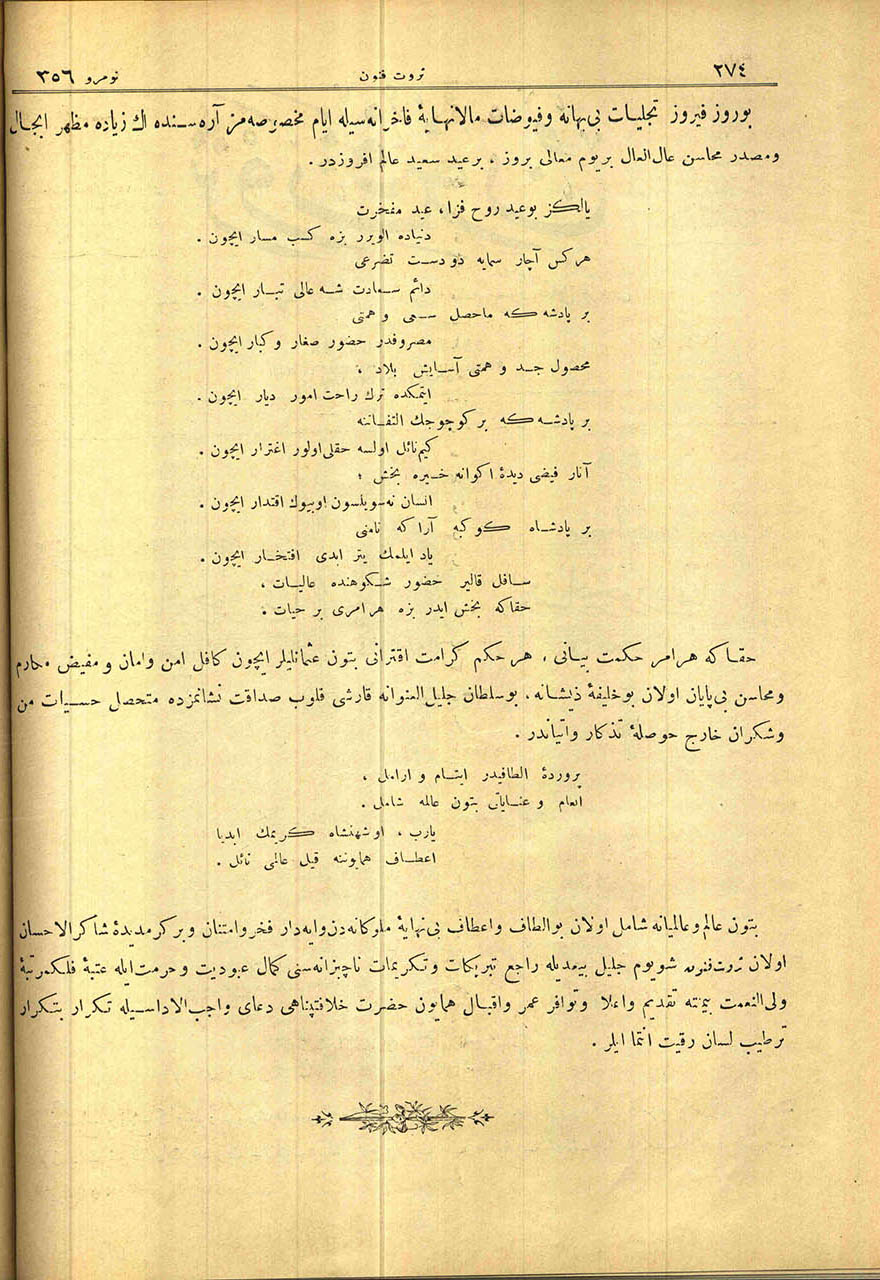 ٢٧٤
ثروت فنون
نومرو ٣٥٦
بوروز فیروز تجلیات بی‌بهانه و فیوضات مالانهایهٔ فاخرانه‌سیله ایام مخصوصه‌مز آره‌سنده اك زیاده مظهر ابجال
ومصدر محاسن عال‌العال بریوم معالی بروز ، برعید سعید عالم افروزدر .
یالكز بوعید روح فزا، عید مفخرت
دنیاده الویرر بزه كسب مسار ایچون .
هركس آچار سمایه دودست تضرعی
دائم سعادت شه عالی تبار ایچون .
بر پادشه كه ماحصل سعی و همتی
مصروفدر حضور صغار و كبار ایچون .
محصول جد و همتی آسایش بلاد ،
ایتمكده ترك راحت امور دیار ایچون .
بر پادشه كه بركوچوجك التفاتنه
كیم نائل اولسه حقلی اولور اغترار ایچون .
آثار فیضی دیدهٔ اكوانه خیره بخش ؛
انسان نه سویلسون اوبیوك اقتدار ایچون .
بر پادشاه كوكبه آرا كه نامنی
یاد ایلمك یتر ابدی افتخار ایچون .
سافل قالیر حضور شكوهنده عالیات ،
حقاكه بخش ایدر بزه هرامری بر حیات .
حقاكه هرامر حكمت بیانی ، هرحكم كرامت اقترانی بتون عثمانلیلر ایچون كافل امن وامان و مفیض مكارم
ومحاسن بی‌پایان اولان بوخلیفهٔ ذیشانه ، بوسلطان جلیل‌العنوانه قارشی قلوب صداقت نشانمزده متحصل حسیات من
وشكران خارج حوصلهٔ تذكار واتیاندر .
پروردهٔ الطافیدر ایتام و ارامل ،
انعام و عنایاتی بتون عالمه شامل .
یارب ، اوشهنشاه كریمك ابدیا
اعطاف همایوننه قیل عالمی نائل .
بتون عالم وعالمیانه شامل اولان بوالطاف واعطاف بی‌نهایهٔ ملوكانه‌دن وایه‌دار فخروامتنان وبركرمدیدهٔ شاكرالاحسان
اولان ثروت فنون شویوم جلیل بیعدیله راجع تبریكات وتكریمات ناچیزانه‌سنی كمال عبودیت وحرمت ایله عتبهٔ فلكمرتبهٔ
ولی‌النعمت بیمنته تقدیم واعلا وتوافر عمر واقبال همایون حضرت خلافتپناهی دعای واجب‌الاداسیله تكرار بتكرار
ترطیب لسان رقیت انتما ایلر .